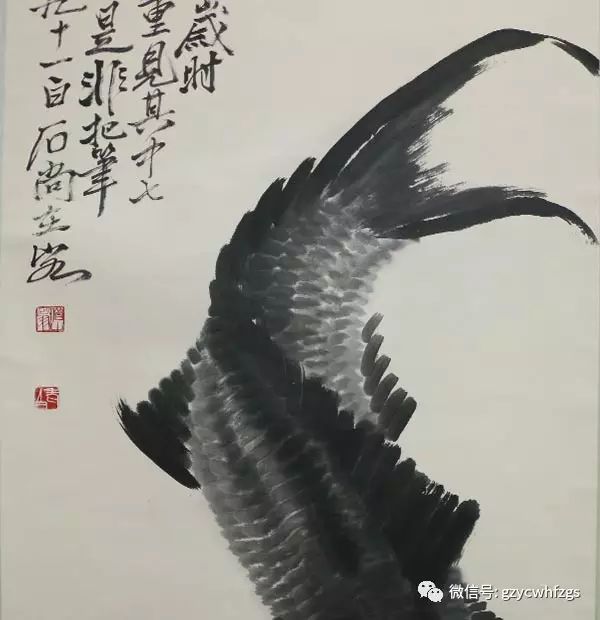 歲时
重見其中七
是非把筆
十一白石尚在客
微信号: gzycwhfzgs